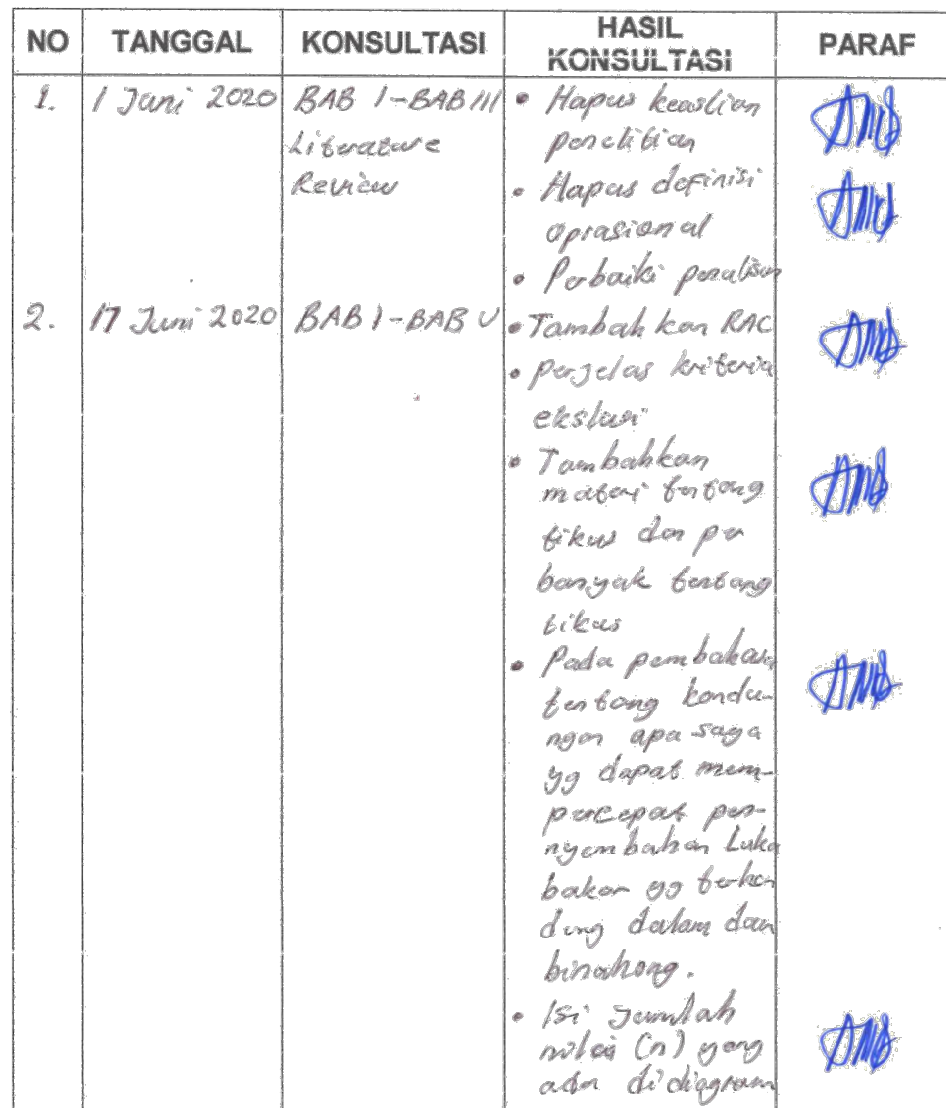 NO TANGGAL KONSULTASI HASIL KONSULTASI PARAF
1. 1 Juni 2020 BAB I-BAB III Literature Review
• Hapus keaslian
penelitian
• Hapus definisi
oprasional
• Perbaiki penulisan
2. 17 Juni 2020 BAB I-BAB V
• Tambahkan RAC
• Perjelas kriteria
ekslusi
• Tambahkan
materi tentang
tikus dan per
banyak tentang
tikus
• Pada pembahasan
tentang kandu-
ngan apa saja
yg dapat mem-
percepat pen-
nyembahan Luka
bakar yg terkan
dung dalam daun
binahong.
• Isi jumlah
nilai (n) yang
ada didiagram